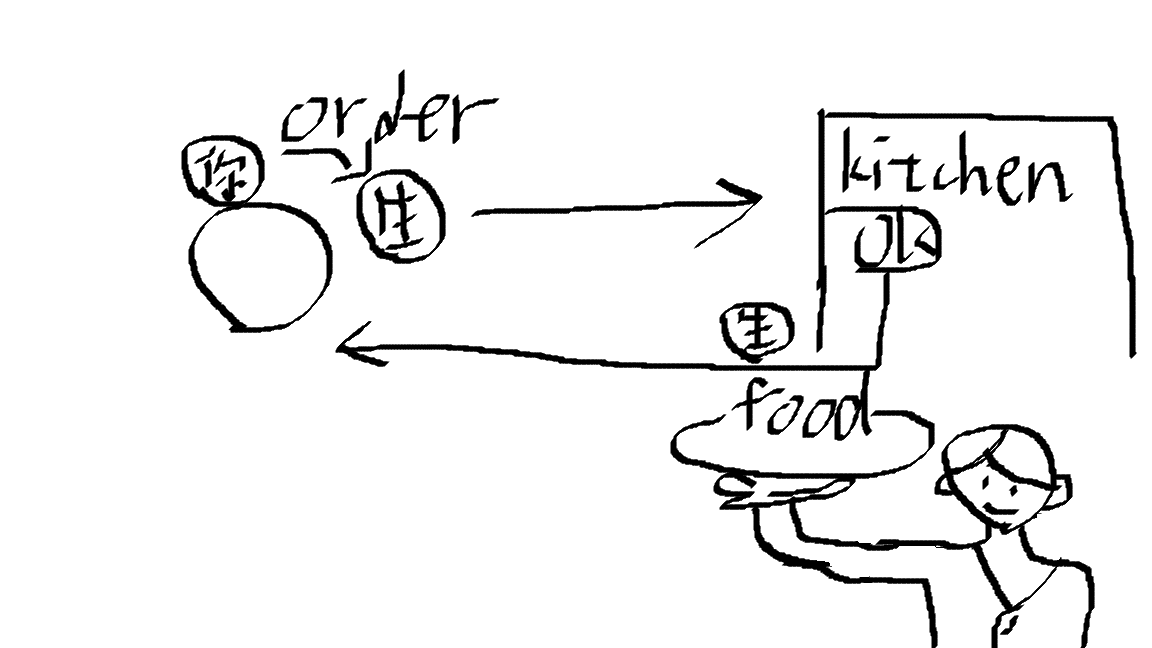 order
你
生
kitchen
ok
生
food